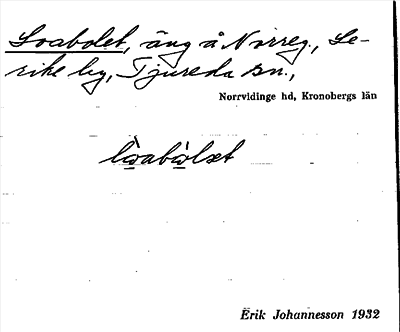 Loabolet, äng å Norreg., Le-
rike by, Tjureda sn.,
Norrvidinge hd, Kronobergs län
lòabòlet
Erik Johannesson 1932